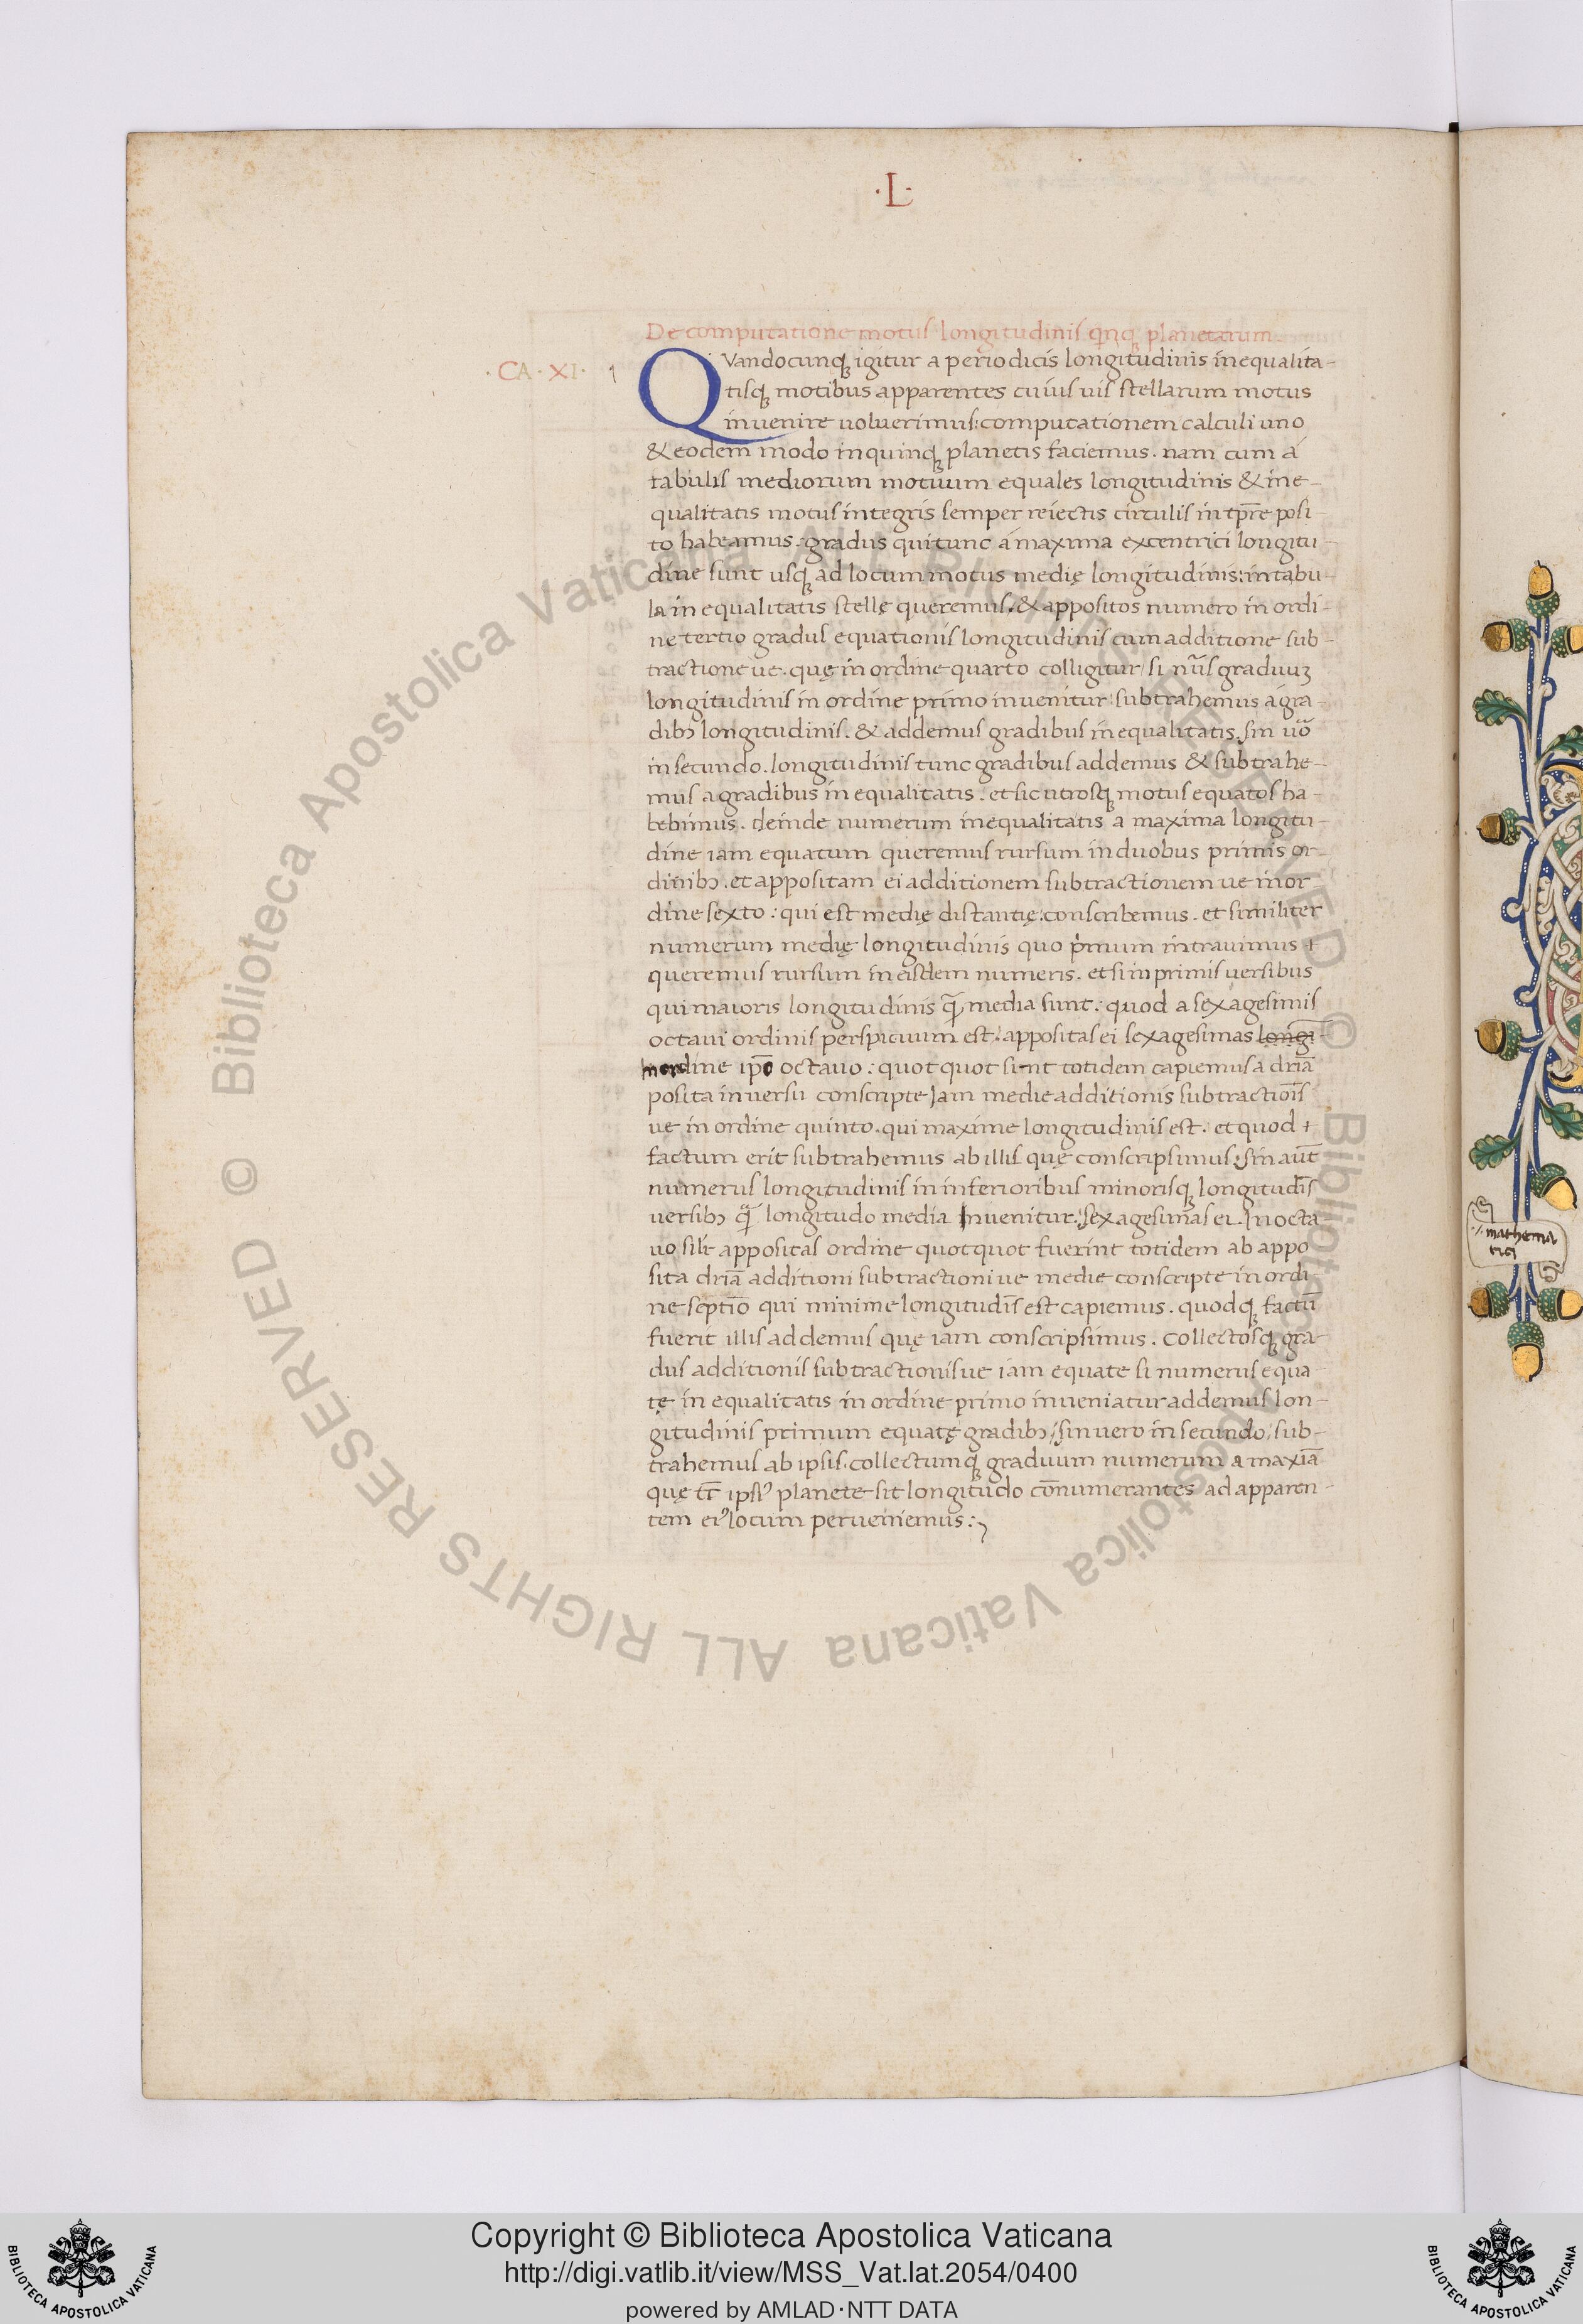 ·L·
De computatione motus longitudinis qnq planetarum
·CA·XI·
QVandocunqꝫ igitur a periodicis longitudinis inequalita-
tisqꝫ motibus apparentes cuius uis stellarum motus
inuenire uoluerimus: computationem calculi uno
& eodem modo in quinqꝫ planetis faciemus. nam cum á
tabulis mediorum motuum equales longitudinis & ine-
qualitatis motus integris semper reiectis circulis in tp̄re posi-
to habeamus: gradus qui tunc á maxima excentrici longitu-
dine sunt usqꝫ ad locum motus medię longitudinis: in tabu-
la in equalitatis stellę queremus. & appositos numero in ordi-
ne tertio gradus equationis longitudinis cum additione sub-
tractione ue. quę in ordine quarto colligitur / si nūs graduuꝫ
longitudinis in ordine primo inuenitur: subtrahemus a gra-
dibꝫ longitudinis. & addemus gradibus inequalitatis. sin uō
in secundo. longitudinis tunc gradibus addemus & subtrahe-
mus a gradibus inequalitatis. et sic utrosqꝫ motus equatos ha-
bebimus. deinde numerum inequalitatis a maxima longitu-
dine iam equatum queremus rursum in duobus primis or-
dinibꝫ. et appositam ei additionem subtractionem ue in or-
dine sexto: qui est medię distantię: conscribemus. et similiter
numerum medię longitudinis quo primum intrauimus +
queremus rursum in eisdem numeris. et si in primis versibus
qui maioris longitudinis q̄ media sunt: quod a sexagesimis
octaui ordinis perspicuum est: appositas ei sexagesimas longi-
in ordine ip̄o octauo: quot quot sunt totidem capiemus a dr̄ia
posita in uersu conscripte iam medie additionis subtractiōis
ue in ordine quinto. qui maxime longitudinis est. et quod +
factum erit subtrahemus ab illis quę conscripsimus: sin aūt
numerus longitudinis in inferioribus minorisqꝫ longitudīs
versibꝫ q̄ longitudo media Inuenitur. sexagesimas ei. In octa-
uo silr appositas ordine quotquot fuerint totidem ab appo
sita dr̄ia additioni subtractioni ue medie conscripte in ordi
ne septīo qui minime longitudīs est capiemus. quodqꝫ factū
fuerit illis addemus quę iam conscripsimus. Collectosqꝫ gra-
dus additionis subtractionis ue iam equate si numerus equa-
tę in equalitatis in ordine primo inueniatur addemus lon-
gitudinis primum equatę gradibꝫ / sin uero in secundo / sub-
trahemus ab ipsis. collectumqꝫ graduum numerum a maxīa
quę tr̄ ipsiꝰ planete sit longitudo cōnumerantes ad apparen-
tem eiꝰ locum perueniemus:
mathema
tici
Copyright © Biblioteca Apostolica Vaticana
http://digi.vatlib.it/view/MSS_Vat.lat.2054/0400
powered by AMLAD·NTT DATA
BIBLIOTECA APOSTOLICA VATICANA
BIBLIOTECA APOSTOLICA VATICANA
© Biblioteca Apostolica Vaticana ALL RIGHTS RESERVED © Biblioteca Apostolica Vaticana ALL RIGHTS RESERVED